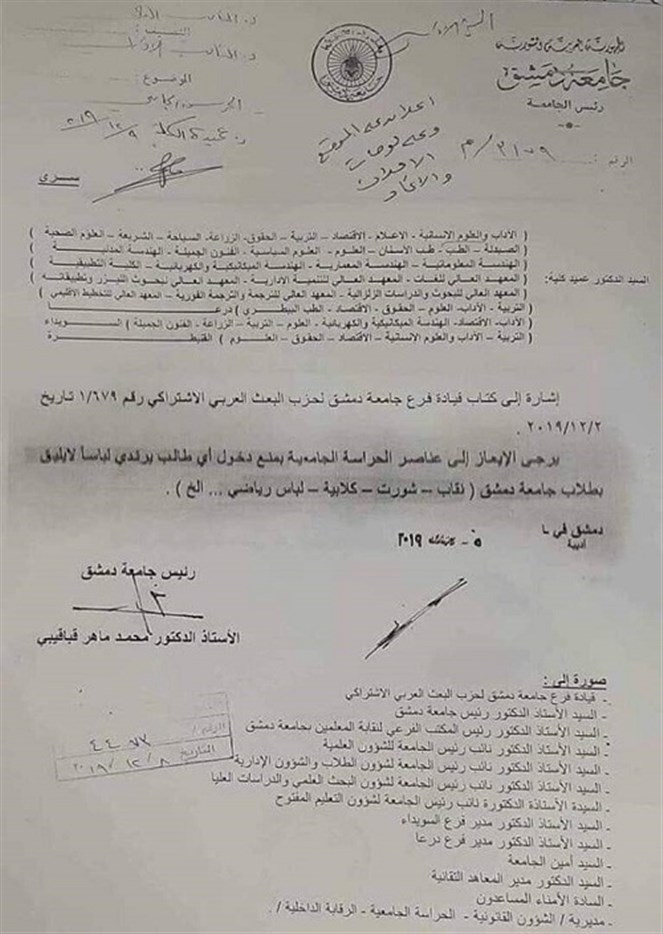 الجمهورية العربية السورية
جامعة دمشق
رئيس الجامعة
الرقم : ٢١٠٩/م
الموضوع :
٢٠١٩/١٢/٩
اعلان على الموقع
وعلى لوحات
الاعلان
والاتحاد
سري
السيد الدكتور عميد كلية:
( الآداب والعلوم الإنسانية - الاعلام - الاقتصاد – التربية – الحقوق- الزراعة- السياحة – الشريعة – العلوم الصحية )
( الصيدلة – الطب- طب الأسنان – العلوم – العلوم السياسية - الفنون الجميلة - الهندسة المدنية )
( الهندسة المعلوماتية – الهندسة المعمارية- الهندسة الميكانيكية والكهربائية – الكلية التطبيقية )
( المعهد العالي للغات - المعهد العالي للتنمية الادارية - المعهد العالي لبحوث الليزر وتطبيقاته )
( المعهد العالي للبحوث والدراسات الزلزالية - المعهد العالي للترجمة والترجمة الفورية – المعهد العالي للتخطيط الأقليمي )
( التربية - الآداب- العلوم – الحقوق - الاقتصاد - الطب البيطري ) درعا
( الآداب- الاقتصاد- الهندسة الميكانيكية والكهربائية - العلوم – التربية – الزراعة - الفنون الجميلة ) السويداء
( التربية – الآداب والعلوم الانسانية – الاقتصاد – الحقوق – العلوم ) القنيطرة
إشارة إلى كتاب قيادة فرع جامعة دمشق لحزب البعث العربي الاشتراكي رقم ١/٦٧٩ تاريخ
٢٠١٩/١٢/٢ .
يرجى الإيعاز إلى عناصر الحراسة الجامعية بمنع دخول أي طالب يرتدي لباساً لايليق
بطلاب جامعة دمشق ( نقاب – شورت – كلابية – لباس رياضي ... الخ ) .
دمشق في
٥ - ٢٠١٩
رئيس جامعة دمشق
الأستاذ الدكتور محمد ماهر قباقيبي
صورة إلى :
- قيادة فرع جامعة دمشق لحزب البعث العربي الاشتراكي
- السيد الأستاذ الدكتور رئيس جامعة دمشق
- السيد الأستاذ الدكتور رئيس المكتب الفرعي لنقابة المعلمين بجامعة دمشق
- السيد الأستاذ الدكتور نائب رئيس الجامعة للشؤون العلمية
- السيد الأستاذ الدكتور نائب رئيس الجامعة لشؤون الطلاب والشؤون الإدارية
- السيد الأستاذ الدكتور نائب رئيس الجامعة لشؤون البحث العلمي والدراسات العليا
- السيدة الأستاذة الدكتورة نائب رئيس الجامعة لشؤون التعليم المفتوح
- السيد الأستاذ الدكتور مدير فرع السويداء
- السيد الأستاذ الدكتور مدير فرع درعا
- السيد أمين الجامعة
- السيد الدكتور مدير المعاهد التقانية
- السادة الأمناء المساعدون
- مديرية / الشؤون القانونية - الحراسة الجامعية - الرقابة الداخلية / .
الرقم
التاريخ ٢٠١٩/١٢/٨